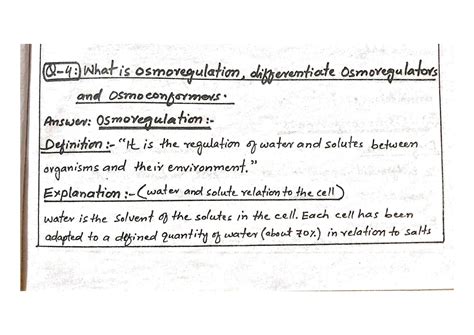 Q-4: What is osmoregulation, differentiate Osmoregulators
and Osmoconformers.
Answer: Osmoregulation:-
Definition:- "It is the regulation of water and solutes between
organisms and their environment."
Explanation:- (water and solute relation to the cell)
water is the solvent of the solutes in the cell. Each cell has been
adapted to a defined quantity of water (about 70%) in relation to salts